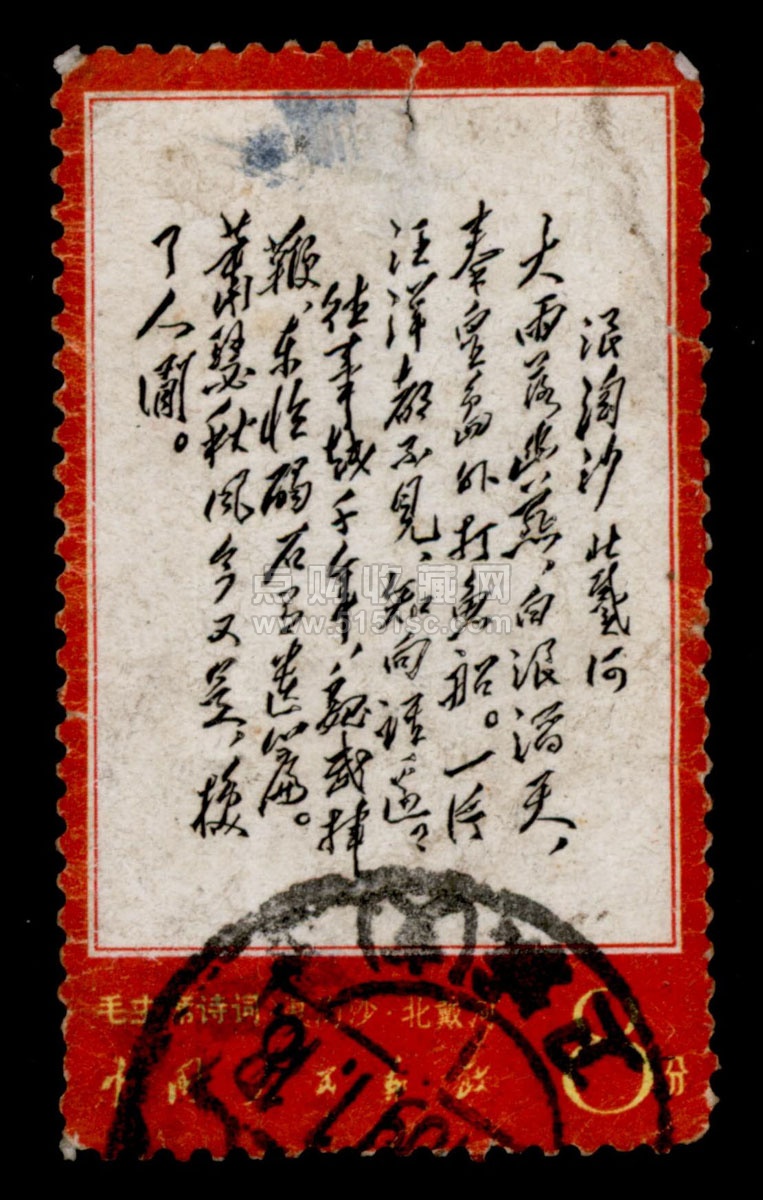 浪淘沙 北戴河
大雨落幽燕,白浪滔天,
秦皇岛外打鱼船。一片
汪洋都不见,知向谁边?
往事越千年,魏武挥
鞭,东临碣石有遗篇。
萧瑟秋风今又是,换
了人间。
点购收藏网
www.5151sc.com
毛主席诗词·浪淘沙·北戴河
中国人民邮政
8分